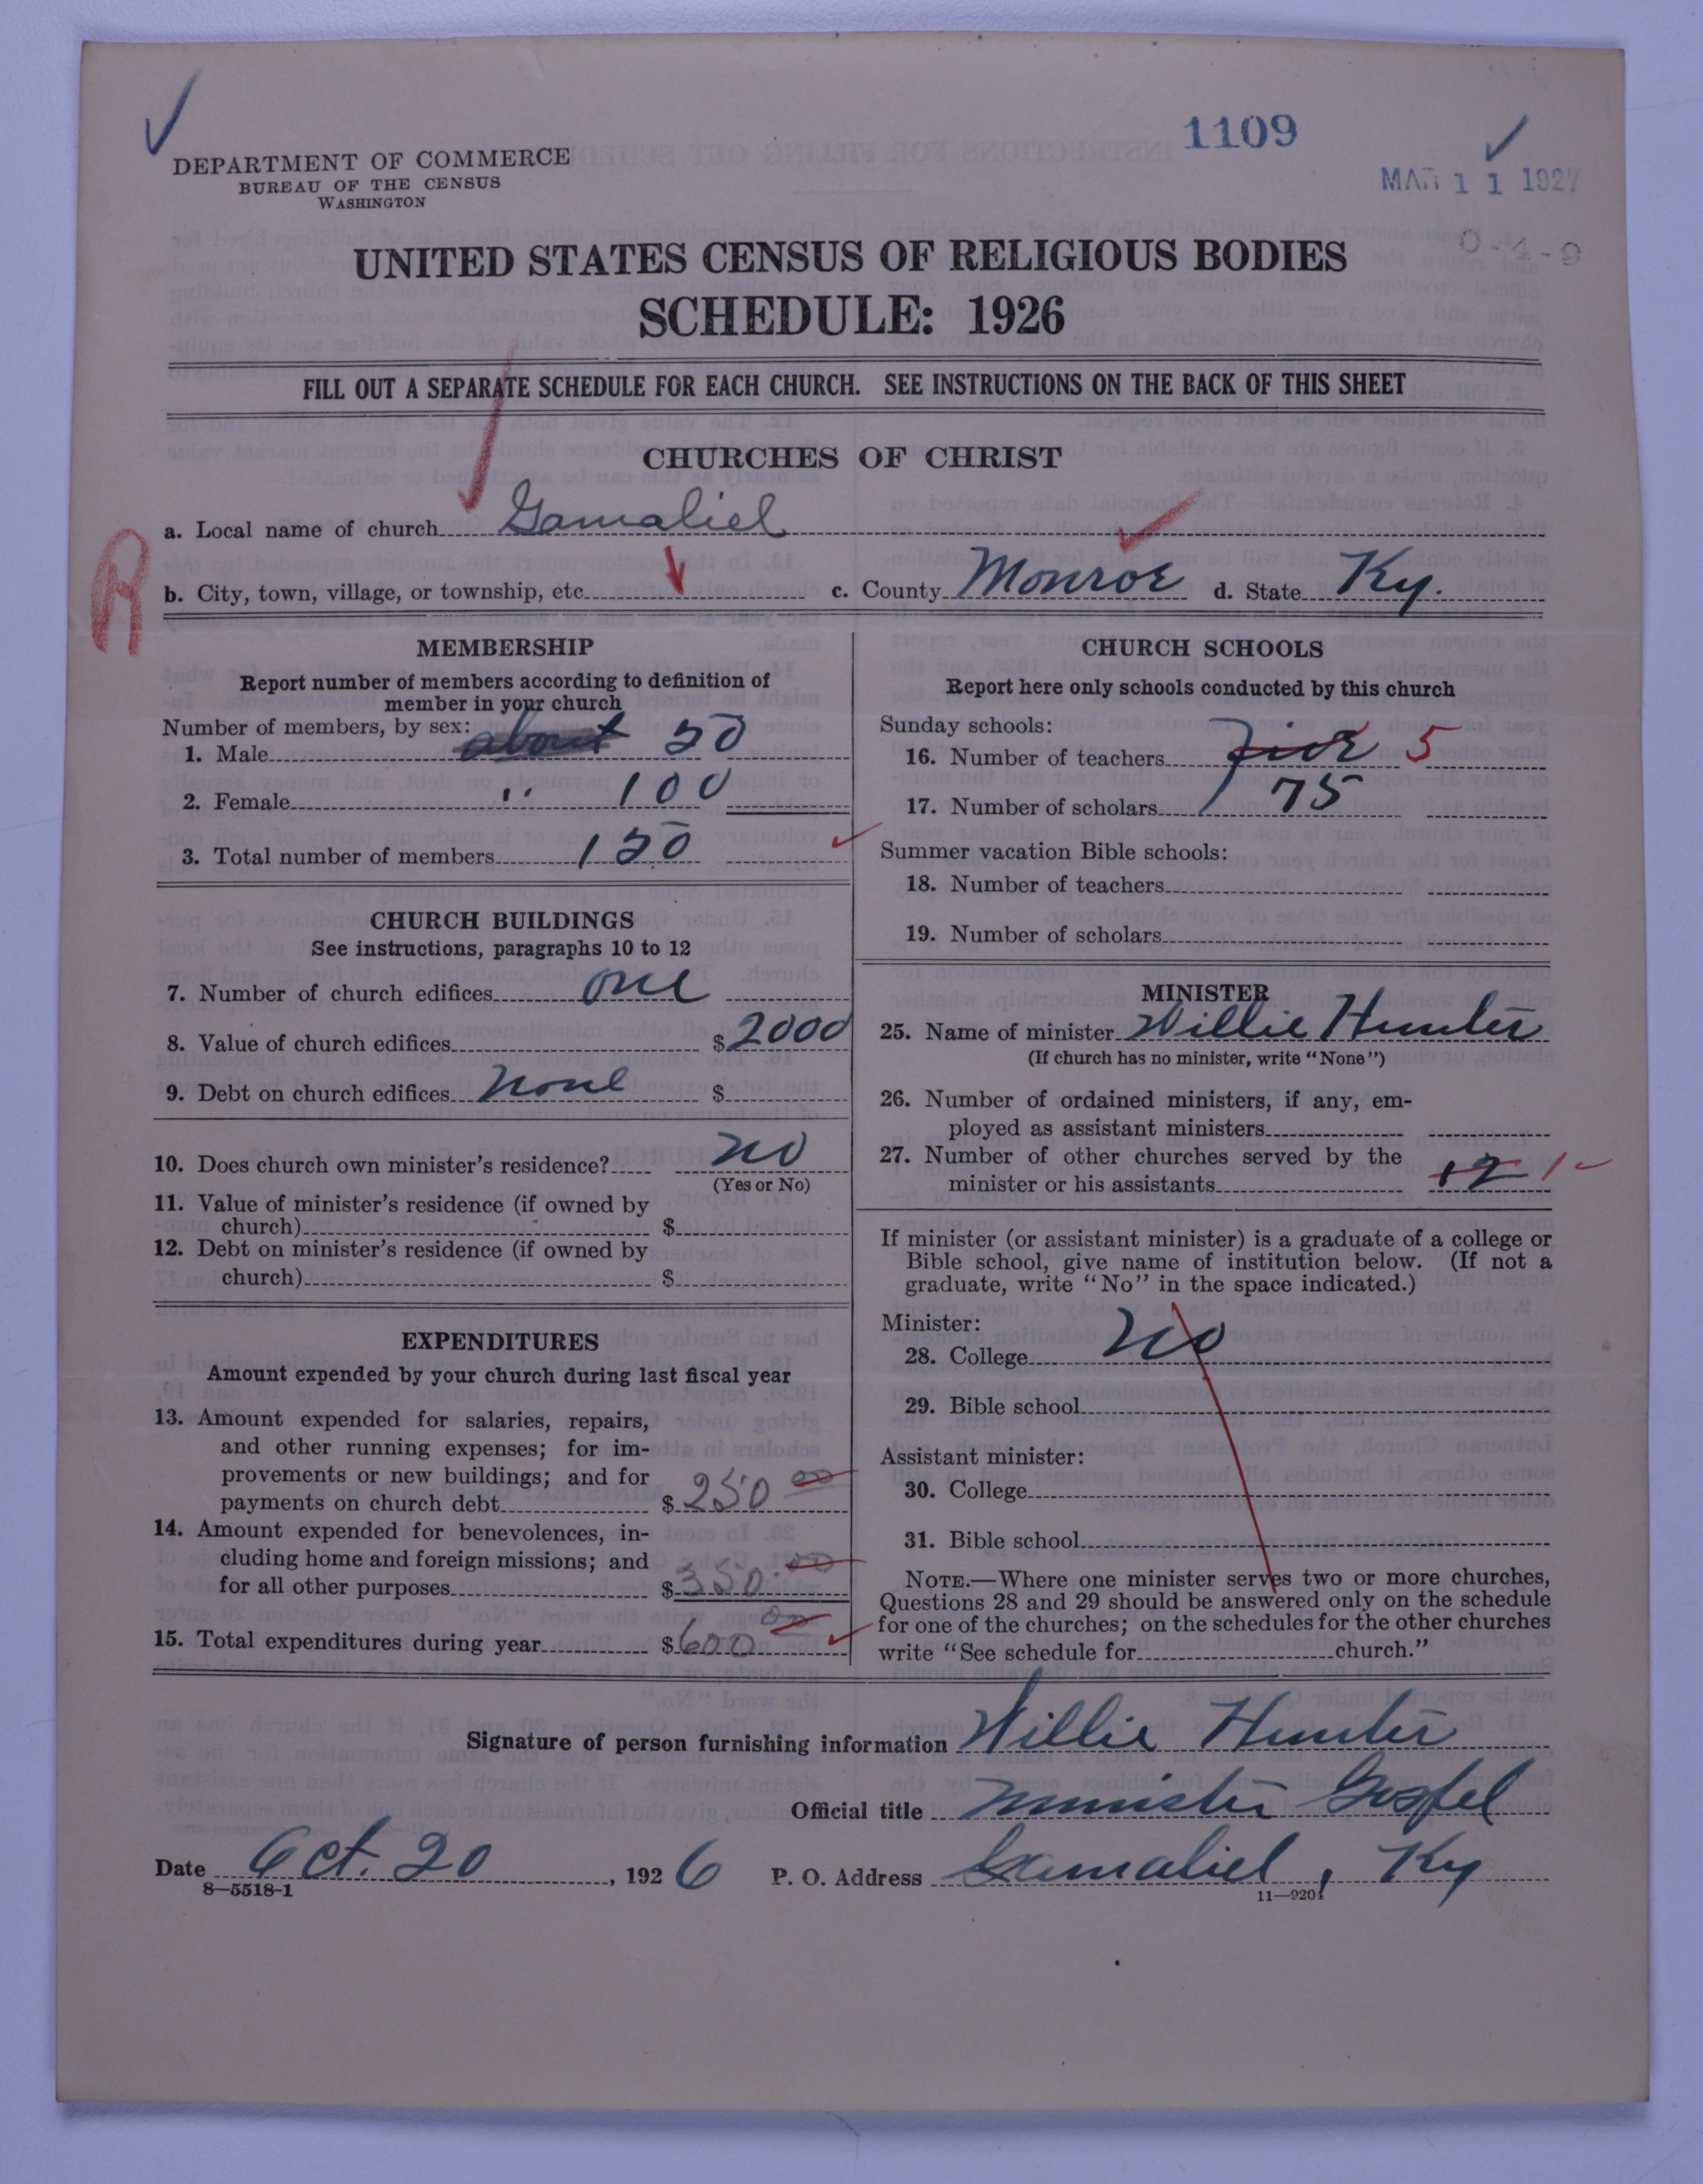 1109
MAR 11 1927
0-4-9
DEPARTMENT OF COMMERCE
BUREAU OF THE CENSUS
WASHINGTON
UNITED STATES CENSUS OF RELIGIOUS BODIES
SCHEDULE: 1926
FILL OUT A SEPARATE SCHEDULE FOR EACH CHURCH. SEE INSTRUCTIONS ON THE BACK OF THIS SHEET
CHURCHES OF CHRIST
a. Local name of church Gamaliel
R
b. City, town, village, or township, etc. c. County Monroe d. State Ky.
MEMBERSHIP
Report number of members according to definition of
member in your church
Number of members, by sex:
1. Male about 50
2. Female " 100
3. Total number of members 150
CHURCH BUILDINGS
See instructions, paragraphs 10 to 12
7. Number of church edifices one
8. Value of church edifices $ 2000
9. Debt on church edifices none $
10. Does church own minister's residence? no
(Yes or No)
11. Value of minister's residence (if owned by
church) $
12. Debt on minister's residence (if owned by
church) $
EXPENDITURES
Amount expended by your church during last fiscal year
13. Amount expended for salaries, repairs,
and other running expenses; for im-
provements or new buildings; and for
payments on church debt $ 250 00
14. Amount expended for benevolences, in-
cluding home and foreign missions; and
for all other purposes $ 350.00
15. Total expenditures during year $ 600 00
CHURCH SCHOOLS
Report here only schools conducted by this church
Sunday schools:
16. Number of teachers five 5
17. Number of scholars 75
Summer vacation Bible schools:
18. Number of teachers
19. Number of scholars
MINISTER
25. Name of minister Willie Hunter
(If church has no minister, write "None")
26. Number of ordained ministers, if any, em-
ployed as assistant ministers
27. Number of other churches served by the
minister or his assistants 12
If minister (or assistant minister) is a graduate of a college or
Bible school, give name of institution below. (If not a
graduate, write "No" in the space indicated.)
Minister:
28. College no
29. Bible school
Assistant minister:
30. College
31. Bible school
NOTE.—Where one minister serves two or more churches,
Questions 28 and 29 should be answered only on the schedule
for one of the churches; on the schedules for the other churches
write "See schedule for church."
Signature of person furnishing information Willie Hunter
Official title Minister Gospel
Date Oct. 20, 1926 P. O. Address Gamaliel, Ky
8—5518-1
11—9201